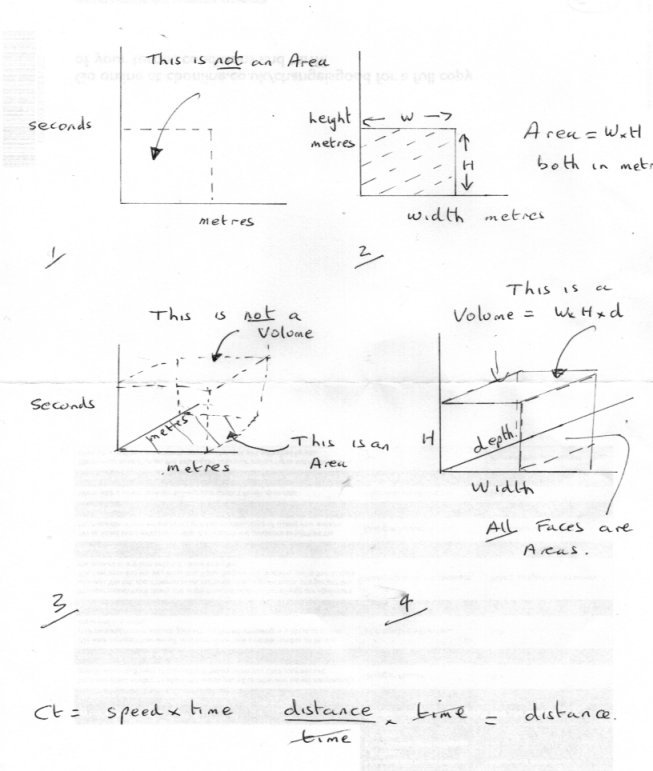 This is not an Area
seconds
metres
1
height
metres
← W →
H
width metres
Area = WxH
both in metr
2
This is not a
Volume
Seconds
metres
metres
This is an
Area
3
This is a
Volume = WxHxd
H
depth
Width
All Faces are
Areas.
4
Ct = speed x time distance / time x time = distance.